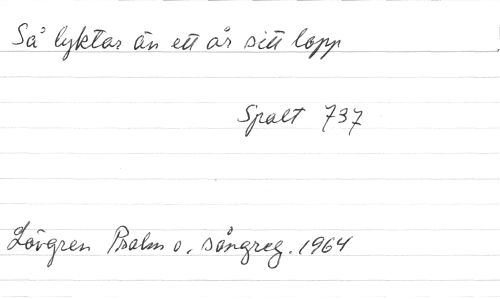 Så lyktar än ett år sitt lopp
Spalt 737
Lövgren Psalm o. sångreg. 1964